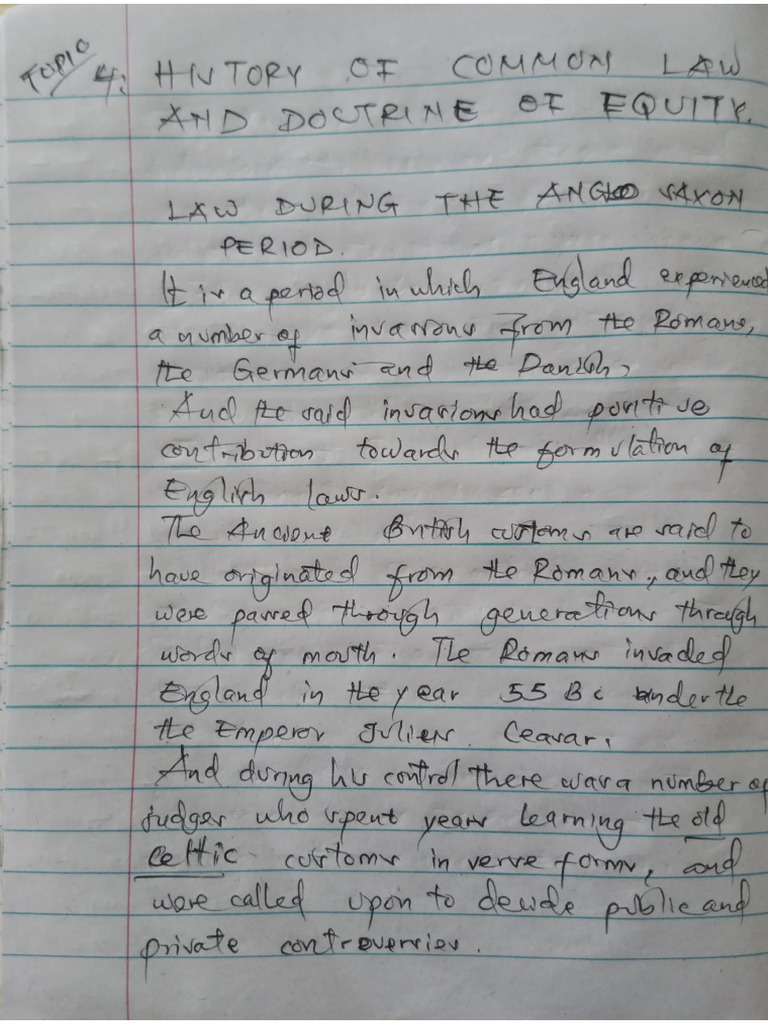 TOPIC 4: HISTORY OF COMMON LAW
AND DOCTRINE OF EQUITY.
LAW DURING THE ANGLO SAXON
PERIOD.
It is a period in which England experienced
a number of invasions from the Romans,
the Germans and the Danish,
And the said invasions had positive
contribution towards the formulation of
English laws.
The Ancient British customs are said to
have originated from the Romans, and they
were passed through generations through
words of mouth. The Romans invaded
England in the year 55 Bc under the
the Emperor Julies Ceasar,
And during his control there was a number of
judges who spent years learning the old
Celtic customs in verse forms, and
were called upon to decide public and
private controversies.